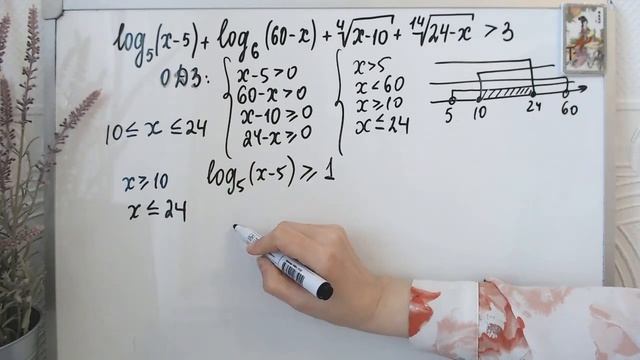 log₅(x-5) + log₆(60-x) + ⁴√(x-10) + ¹⁴√(24-x) > 3
ОДЗ:
x-5>0
60-x>0
x-10≥0
24-x≥0
x>5
x<60
x≥10
x≤24
5 10 24 60
10 ≤ x ≤ 24
x ≥ 10
x ≤ 24
log₅(x-5) ≥ 1